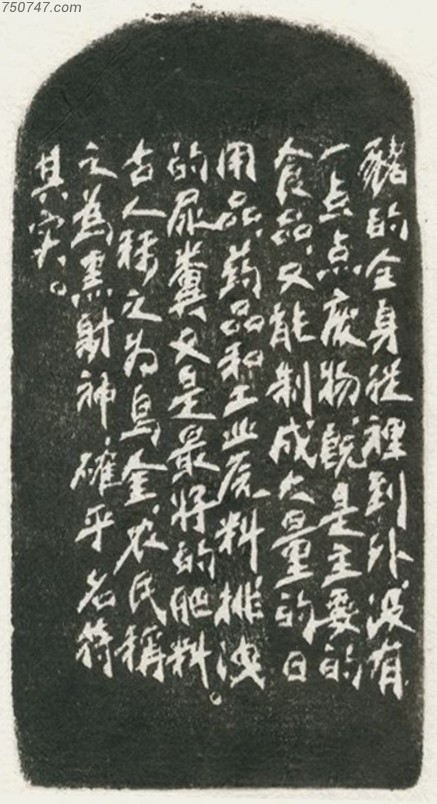 750747.com
豬的全身從裡到外没有
一点点废物既是主要的
食品又能制成大量的日
用品药品和工业原料排洩
的尿糞又是最好的肥料。
古人称之为烏金农民稱
之為黑財神確乎名符
其实。